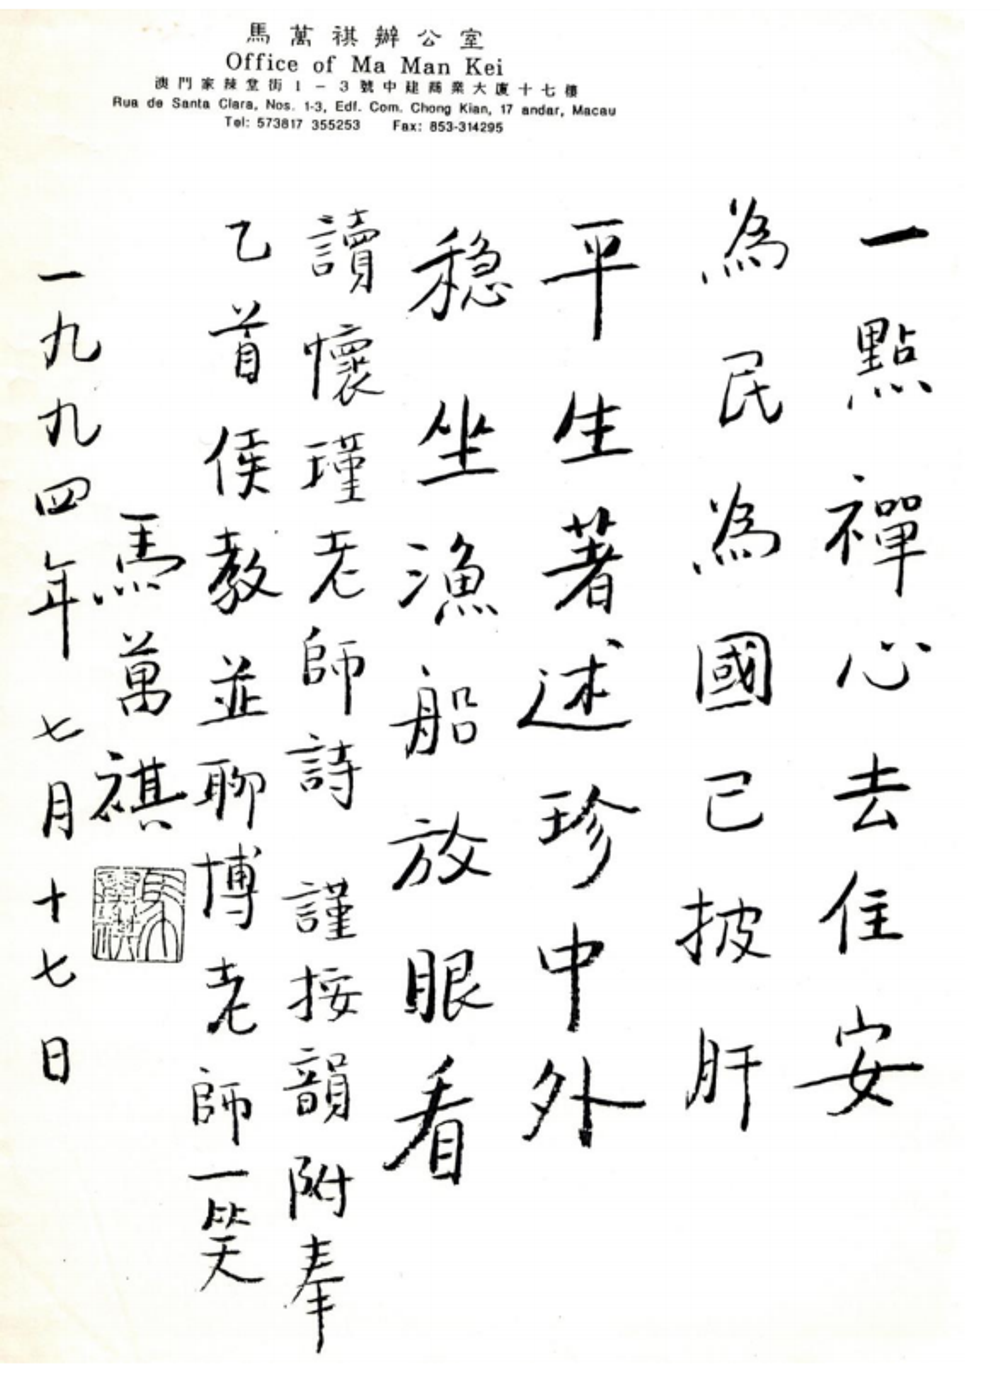 馬萬祺辦公室
Office of Ma Man Kei
澳門家辣堂街1-3號中建商業大廈十七樓
Rua de Santa Clara, Nos. 1-3, Edf. Com. Chong Kian, 17 andar, Macau
Tel: 573817 355253 Fax: 853-314295
一點禪心去住安
為民為國已披肝
平生著述珍中外
穩坐漁船放眼看
讀懷瑾老師詩 謹按韻附奉
乙首候教並聊博老師一笑
馬萬祺
馬萬祺
一九九四年七月十七日